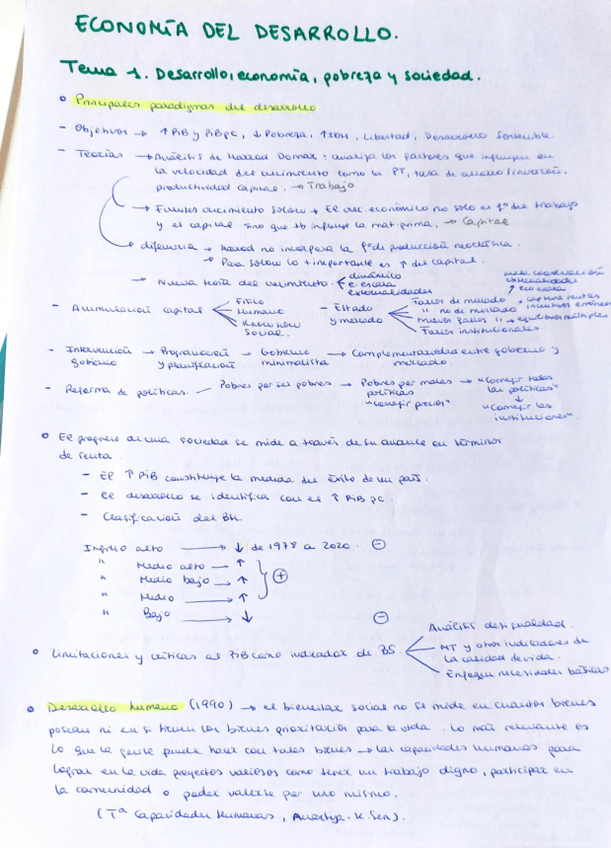 ECONOMÍA DEL DESARROLLO.
Tema 1. Desarrollo, economía, pobreza y sociedad.
Principales paradigmas del desarrollo
- Objetivos → ↑ PIB y PIBpc, ↓ Pobreza, ↑ IDH, Libertad, Desarrollo Sostenible.
- Teorías → Análisis de Harrod Domar: analiza los factores que influyen en
la velocidad del crecimiento como la PT, tasa de ahorro e inversión,
productividad capital. → Trabajo
→ crecimiento Solow → El crec. económico no solo es fº del trabajo
y el capital sino que tb influye la mat. prima. → Capital
diferencia → Harrod no incorpora la fº de producción neoclásica.
→ Para Solow lo + importante es ↑ del capital.
→ Nueva teoría del crecimiento
dinámico
e. escala
externalidades
- Acumulación capital
Físico
Humano
Know how
Social.
- Estado
y mercado
Fallos de mercado
" no de mercado
Nuevos fallos "
Fallos institucionales.
externalidades
captura rentas
equilibrios múltiples
- Intervención
gobierno
→ Programación
y planificación
→ Gobierno
minimalista
→ Complementariedad entre gobierno y
mercado
- Reforma de políticas. — Pobres por ser pobres → Pobres por malas
políticas
"corregir precios"
→ "Corregir todas
las políticas"
↓
"Corregir las
instituciones".
El progreso de una sociedad se mide a través de su avance en términos
de renta.
- El ↑ PIB constituye la medida del éxito de un país.
- El desarrollo se identifica con el ↑ PIB pc.
- Clasificación del BM.
Ingreso alto → ↓ de 1978 a 2020. ⊖
" Medio alto → ↑
" Medio bajo → ↑ ⊕
" Medio → ↑
" Bajo → ↓ ⊖
Limitaciones y críticas al PIB como indicador de BS.
Análisis desigualdad.
NT y otros indicadores de
la calidad de vida.
Enfoque necesidades básicas
Desarrollo humano (1990) → el bienestar social no se mide en cuantos bienes
posean ni en si tienen los bienes prioritarios para la vida. Lo más relevante es
lo que la gente puede hacer con tales bienes → las capacidades humanas para
lograr en la vida proyectos valiosos como tener un trabajo digno, participar en
la comunidad o poder valerse por uno mismo.
(Tª Capacidades Humanas, Amartya. K. Sen).